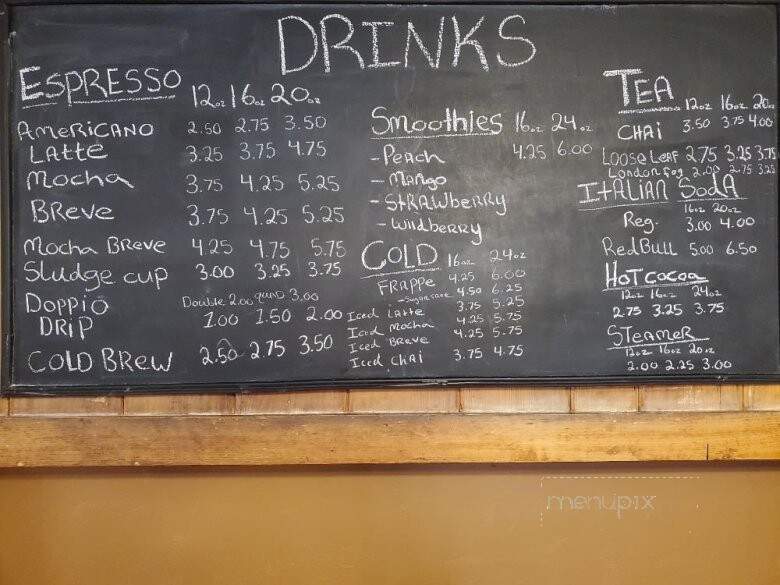 DRINKS
ESPRESSO 12oz 16oz 20oz
AMERICANO 2.50 2.75 3.50
LATTE 3.25 3.75 4.75
Mocha 3.75 4.25 5.25
BREVE 3.75 4.25 5.25
Mocha BREVE 4.25 4.75 5.75
Sludge cup 3.00 3.25 3.75
Doppio Double 2.00 quad 3.00
DRIP 1.00 1.50 2.00
COLD BREW 2.50 2.75 3.50
Smoothies 16oz 24oz
- Peach 4.25 6.00
- Mango
- STRAWBERRY
- Wildberry
COLD 16oz 24oz
FRAPPE 4.25 6.00
- Sugar free 4.50 6.25
Iced Latte 3.75 5.25
Iced Mocha 4.25 5.75
Iced Breve 4.25 5.75
Iced CHAi 3.75 4.75
TEA 12oz 16oz 20oz
CHAi 3.50 3.75 4.00
Loose Leaf 2.75 3.25 3.75
London fog 2.00 2.75 3.25
ITALIAN SODA
16oz 20oz
Reg. 3.00 4.00
RedBull 5.00 6.50
HOT COCOA
12oz 16oz 24oz
2.75 3.25 3.75
STEAMER
12oz 16oz 20oz
2.00 2.25 3.00
menupix